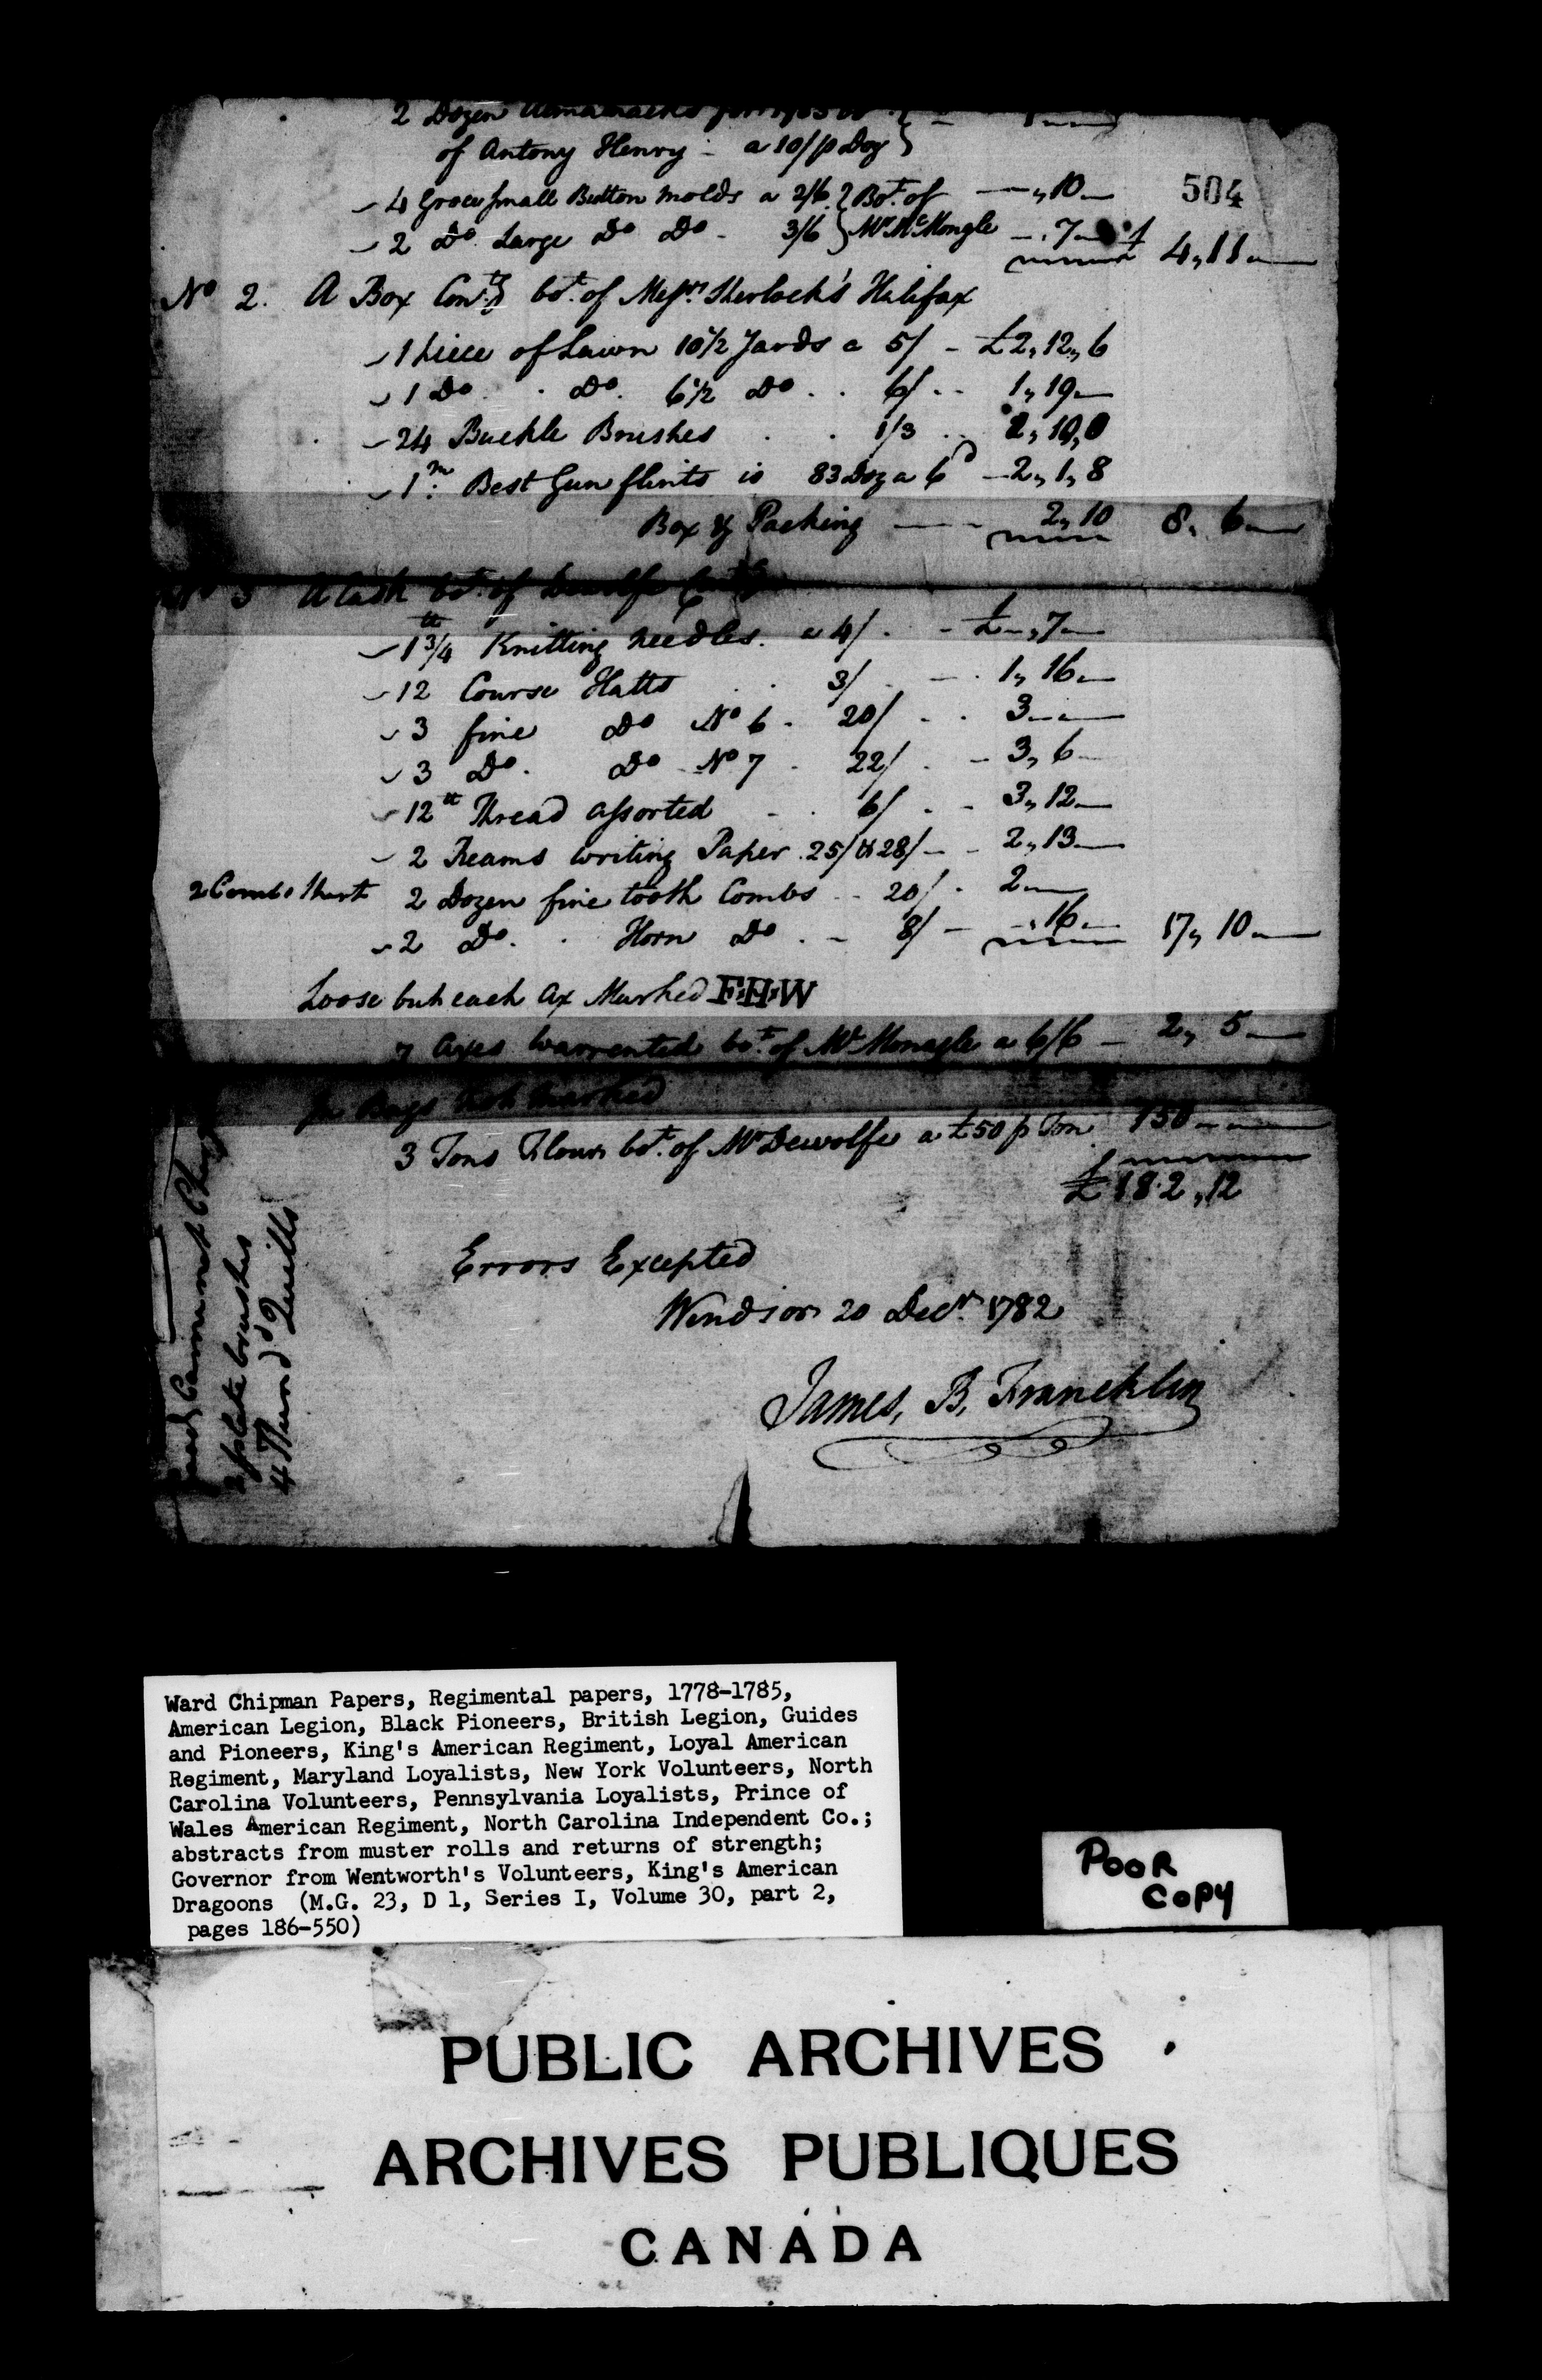 2 Dozen Almanacks for 1783
of Antony Henry - a 10/ p Doz } - 1 „ —
504
4 Groce small Button molds a 2/6 } Bot. of — „ 10 —
2 Do. Large Do Do - 3/6 } Mr. McMongle — „ 7 — £ 4 „ 11 —
No 2. A Box Contg bot. of Messrs. Sherlock's Halifax
1 Piece of Lawn 10 1/2 Yards a 5/ - £2 „ 12 „ 6
1 Do. . Do. 6 1/2 Do . . 6/ . . 1 „ 19 —
24 Buckle Brushes . . 1/3 . . 1 „ 10 „ 0
1 m. Best Gun flints is 83 Doz a 6d — 2 „ 1 „ 8
Box & Packing — - 2 „ 10 8 „ 6 —
No 3 A Cask bot. of Dewolfe
1 3/4 tt Knitting needles. a 4/ . - £ — „ 7 —
12 Course Hatts . . 3/ . — . 1 „ 16 —
3 fine Do No 6 - 20/ . . 3 — —
3 Do. Do No 7 - 22/ . - 3 „ 6 —
12 tt Thread assorted - . 6/ . - 3 „ 12 —
2 Reams writing Paper . 25/ & 28/ - - 2 „ 13 —
2 Combs Short 2 Dozen fine tooth Combs - - 20/ . 2 —
2 Do. . Horn Do . - 8/ — — „ 16 — 17 „ 10 —
Loose but each Ax Marked F·H·W
7 Axes warrented bot. of Mr. Monagle a 6/6 — 2 „ 5 —
In Bags not marked
3 Tons Flour bot. of Mr Dewolfe a £50 p Ton 150 — —
£ 182 „ 12
Errors Excepted
Windsor 20 Decr. 1782
James, B, Franchlin
2 plate brushes
4 Hund'd Quills
Ward Chipman Papers, Regimental papers, 1778-1785,
American Legion, Black Pioneers, British Legion, Guides
and Pioneers, King's American Regiment, Loyal American
Regiment, Maryland Loyalists, New York Volunteers, North
Carolina Volunteers, Pennsylvania Loyalists, Prince of
Wales American Regiment, North Carolina Independent Co.;
abstracts from muster rolls and returns of strength;
Governor from Wentworth's Volunteers, King's American
Dragoons (M.G. 23, D 1, Series I, Volume 30, part 2,
pages 186-550)
POOR
COPY
PUBLIC ARCHIVES
ARCHIVES PUBLIQUES
CANADA